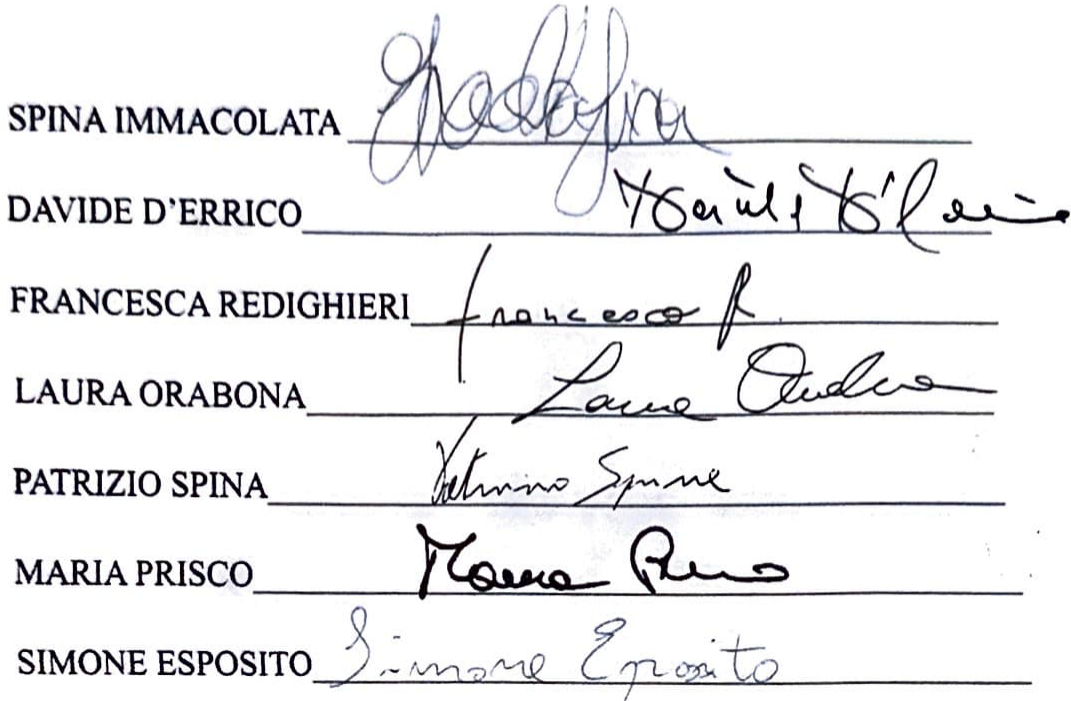 SPINA IMMACOLATA
DAVIDE D'ERRICO
FRANCESCA REDIGHIERI Francesca R.
LAURA ORABONA Laura
PATRIZIO SPINA Spina
MARIA PRISCO Maria
SIMONE ESPOSITO Simone Esposito